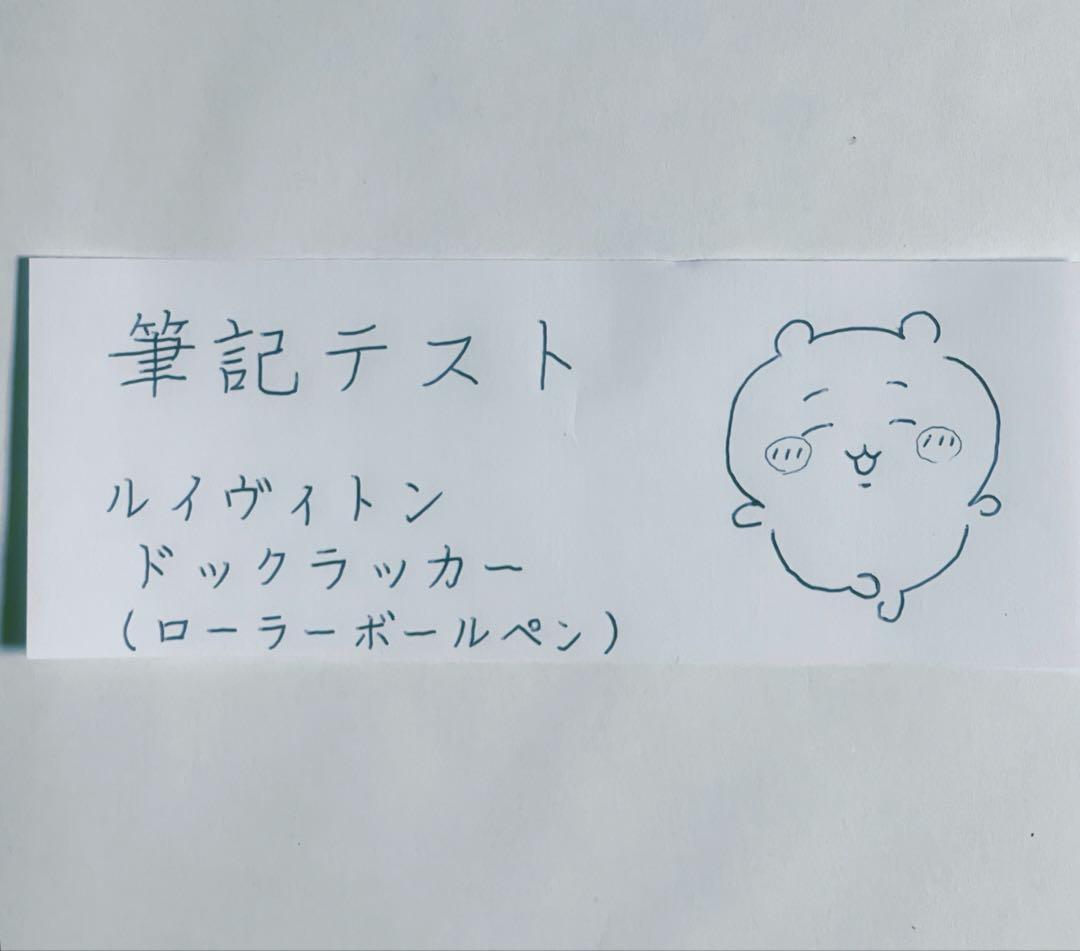 筆記テスト
ルイヴィトン
ドックラッカー
(ローラーボールペン)